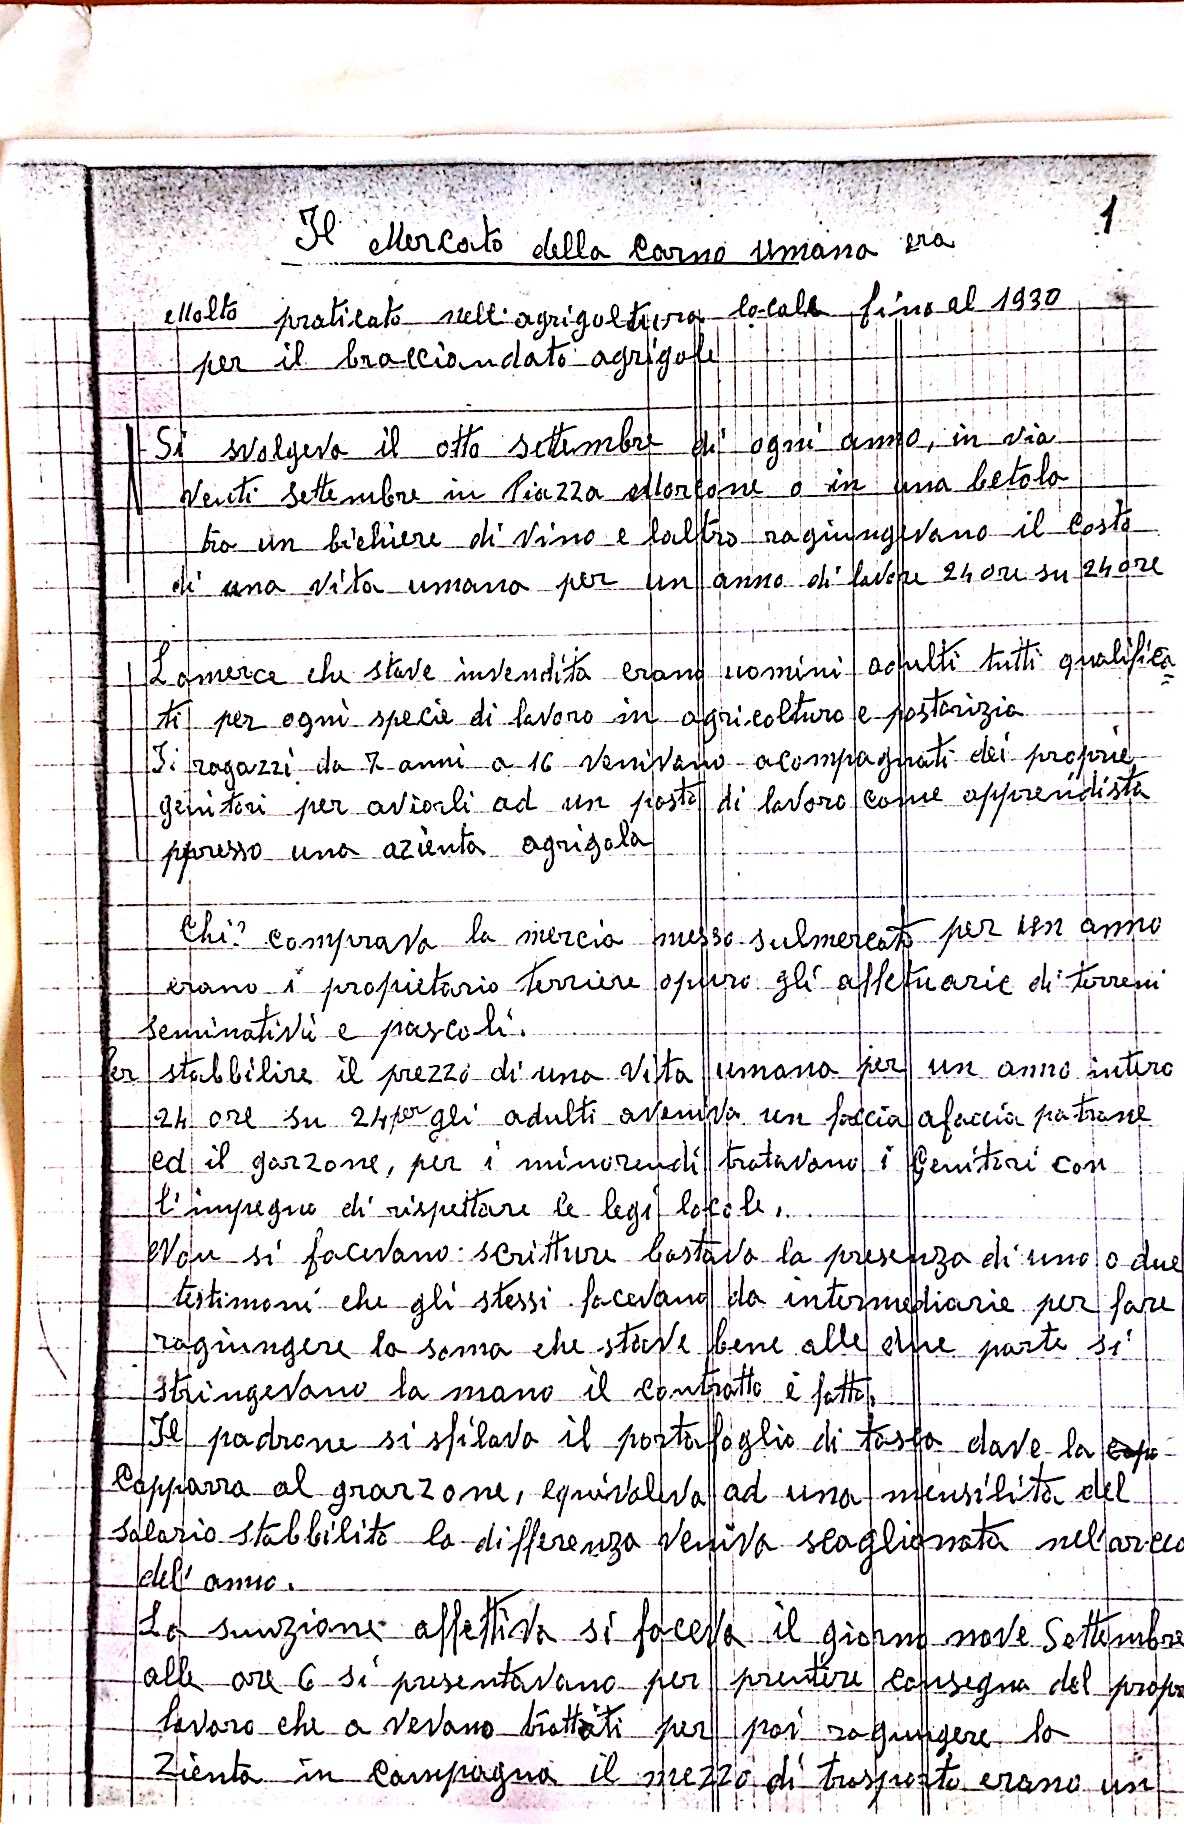 1
Il Mercato della Carna umana era
Molto praticato nell'agrigoltura locale fino al 1930
per il bracciandato agrigole
Si svolgeva il otto settembre di ogni anno, in via
Venti settembre in Piazza Morcone o in una betola
tra un bichiere di vino e laltro ragiungevano il costo
di una vita umana per un anno di lavore 24 ore su 24 ore
La merce che stave invendita erano uomini adulti tutti qualifica=
ti per ogni specie di lavoro in agricoltura e pastorizia
I i ragazzi da 7 anni a 16 venivano acompagnati dei proprie
genitori per aviarli ad un posto di lavoro come apprendista
ppresso una azienta agrigola
Chi? comprava la mercia messo sulmercato per un anno
erano i propietario terriere opuro gli affetuarie di terreni
seminativi e pascoli.
Per stabbilire il prezzo di una vita umana per un anno intero
24 ore su 24 per gli adulti aveniva un faccia afaccia patrone
ed il garzone, per i minorendi tratavano i Genitori con
l'impegno di rispettare le legi locale,
Non si facevano scritture bastava la presenza di uno o due
testimoni che gli stessi facevano da intermediarie per fare
ragiungere la soma che stave bene alle due parte si
stringevano la mano il contratto è fatto.
Il padrone si sfilava il portafoglio di tasca dave la capa
Capparra al grarzone, equivaleva ad una mensilità del
salario stabbilito la differenza veniva scaglionata nel'arco
del'anno.
La sunzione affettiva si faceva il giorno nove Settembre
alle ore 6 si presentavano per prentere consegna del propr
lavoro che a vevano trattati per poi ragiungere la
Zienta in Campagna il mezzo di trasporto erano un